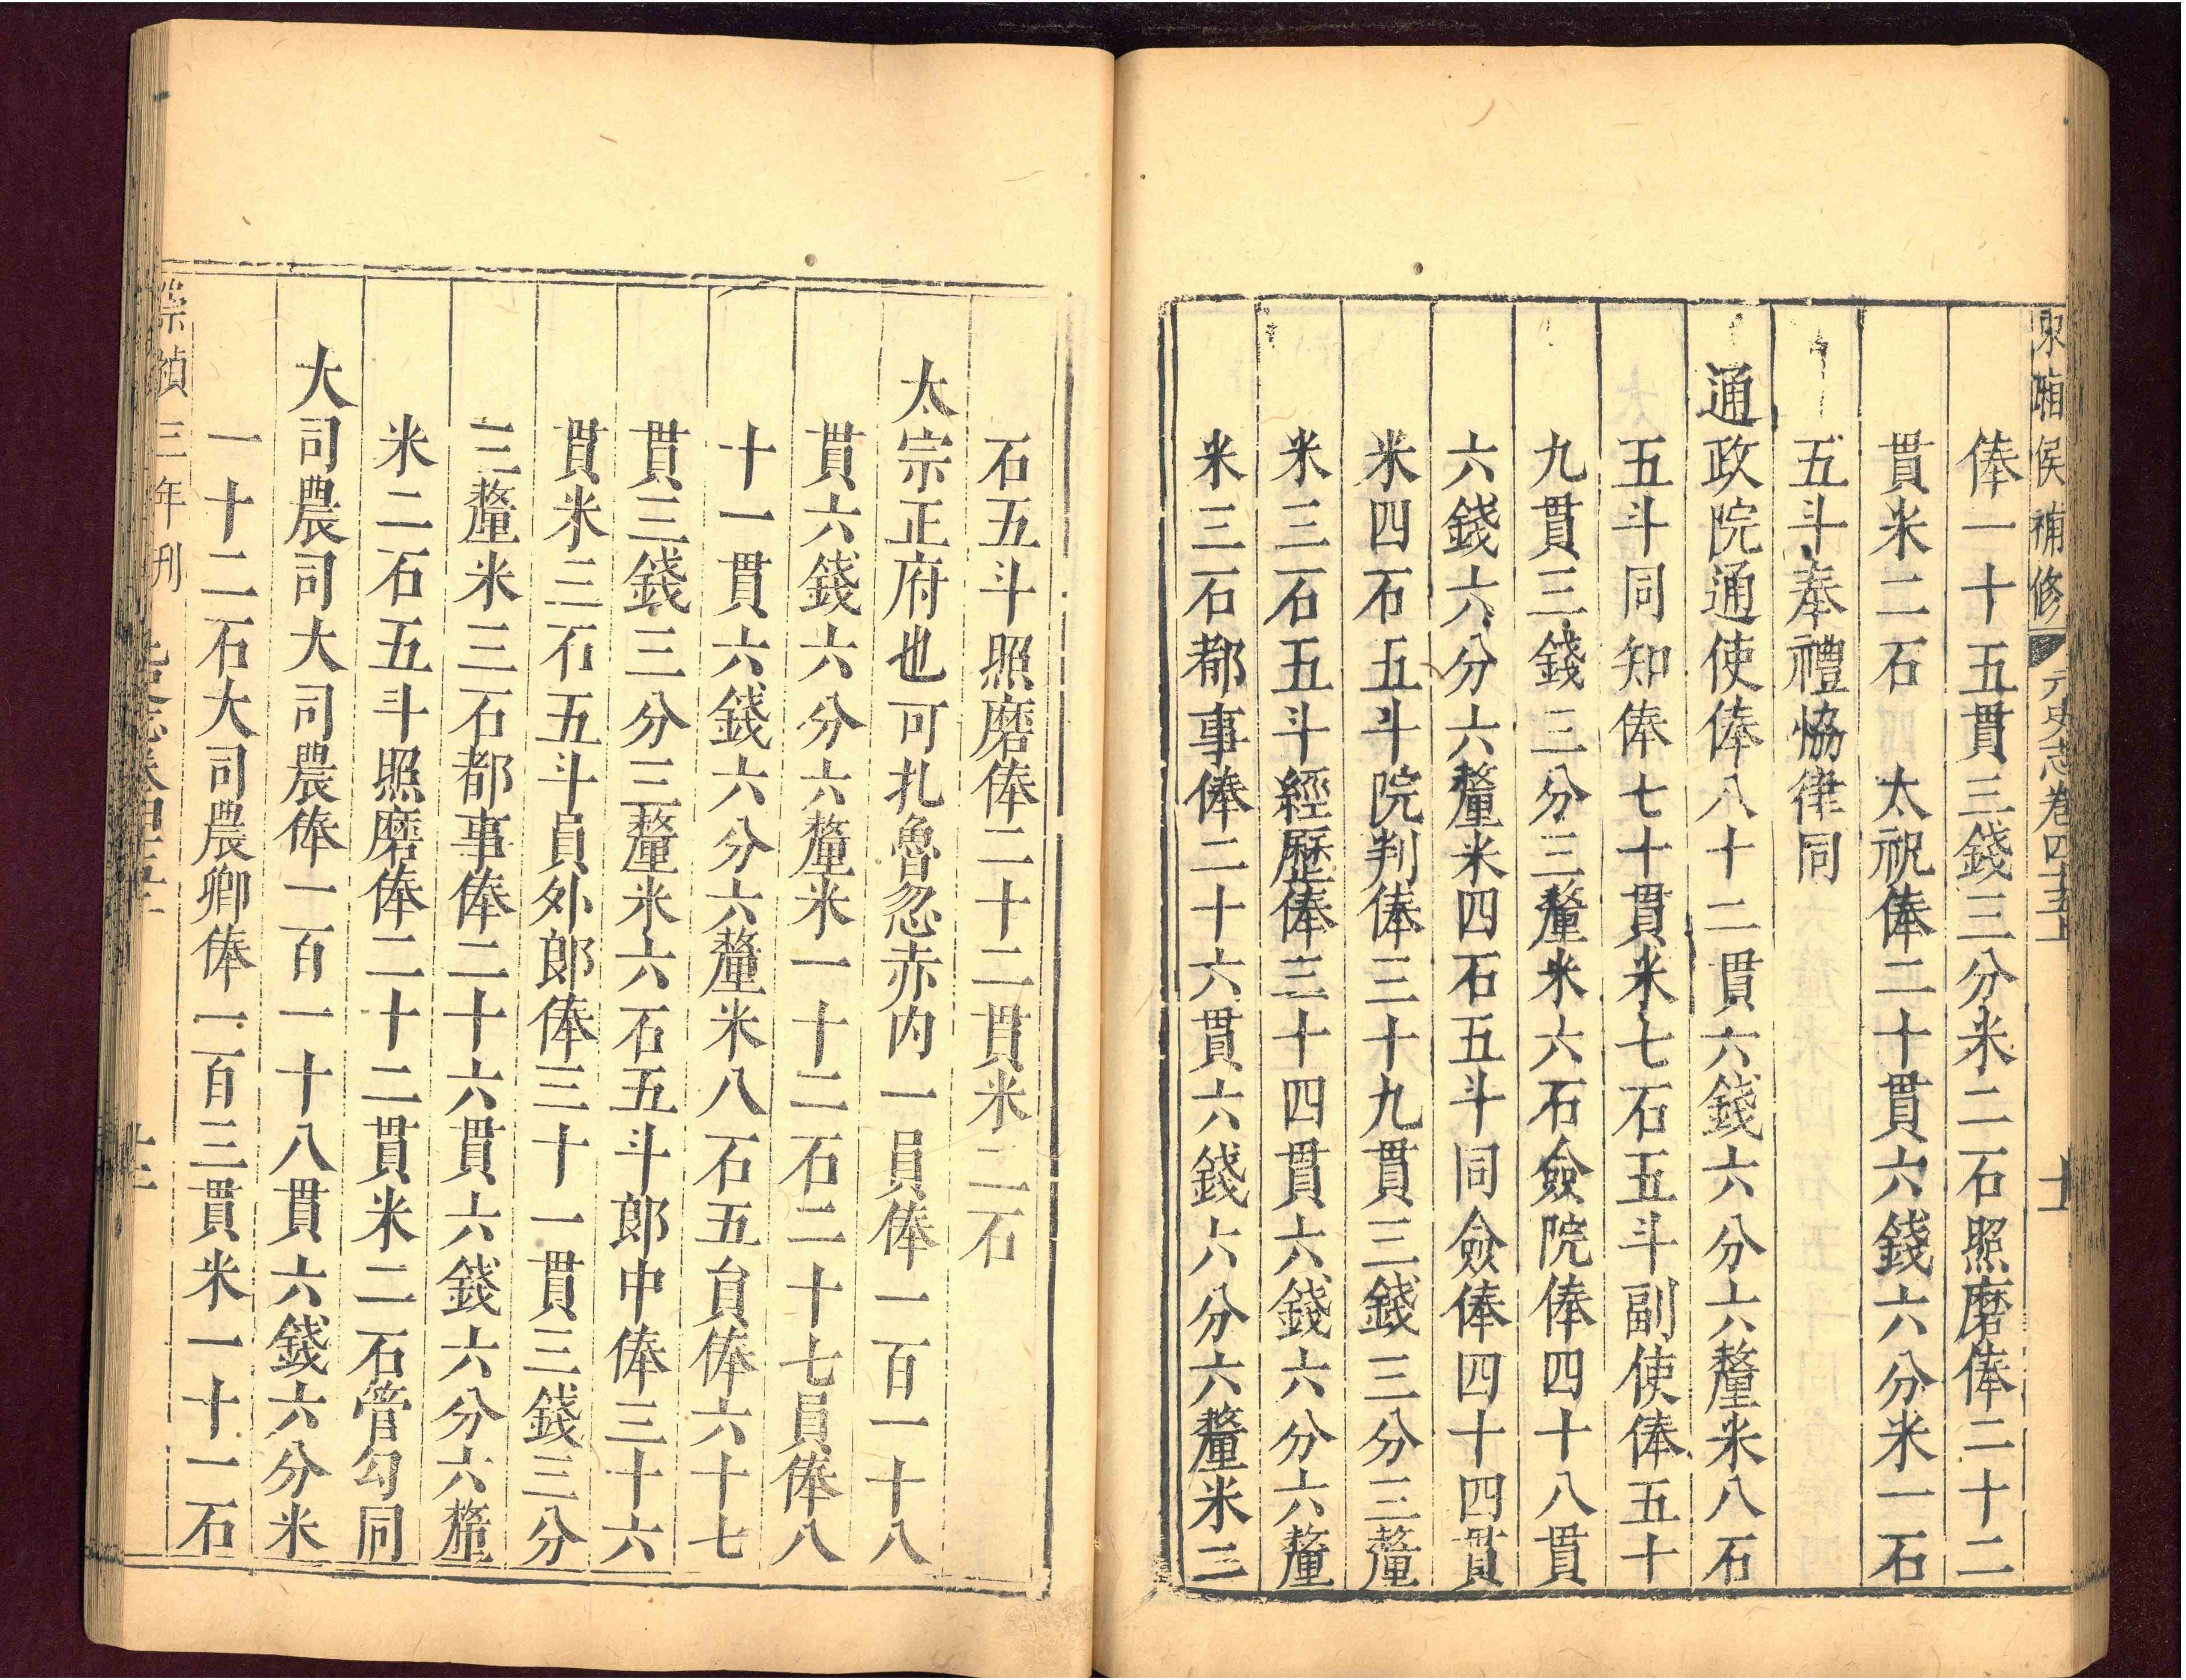 侯補修 元史志卷四十五上 十
俸一十五貫三錢三分米二石照磨俸二十二
貫米二石 太祝俸二十貫六錢六分米一石
五斗奉禮恊律同
通政院通使俸八十二貫六錢六分六釐米八石
五斗同知俸七十貫米七石五斗副使俸五十
九貫三錢三分三釐米六石僉院俸四十八貫
六錢六分六釐米四石五斗同僉俸四十四貫
米四石五斗院判俸三十九貫三錢三分三釐
米三石五斗經歷俸三十四貫六錢六分六釐
米三石都事俸二十六貫六錢六分六釐米二
石五斗照磨俸二十二貫米二石
太宗正府也可扎魯忽赤内一員俸一百一十八
貫六錢六分六釐米一十二石二十七員俸八
十一貫六錢六分六釐米八石五員俸六十七
貫三錢三分三釐米六石五斗郎中俸三十六
貫米三石五斗員外郎俸三十一貫三錢三分
三釐米三石都事俸二十六貫六錢六分六釐
米二石五斗照磨俸二十二貫米二石管勾同
大司農司大司農俸一百一十八貫六錢六分米
一十二石大司農卿俸一百三貫米一十一石
崇禎三年刊